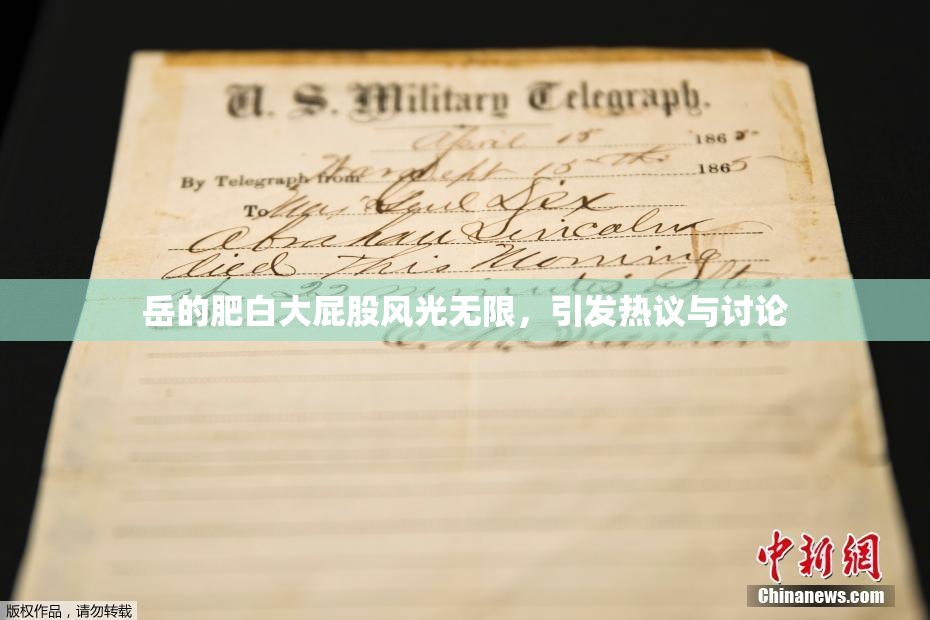 U. S. Military Telegraph.
April 15 1865
By Telegraph from War Dept 15th 1865
To Maj Genl Dix
Abraham Lincoln
died this Morning
at 22 minutes after
岳的肥白大屁股风光无限，引发热议与讨论
中新网
Chinanews.com
版权作品，请勿转载